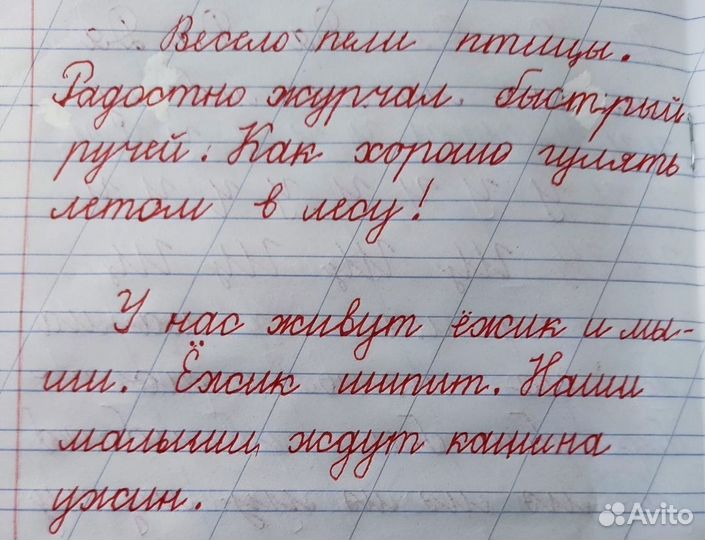 Весело пели птицы.
Радостно журчал быстрый
ручей. Как хорошо гулять
летом в лесу!
У нас живут ёжик и мы-
ши. Ёжик шипит. Наши
малыши ждут кашина
ужин.
Avito